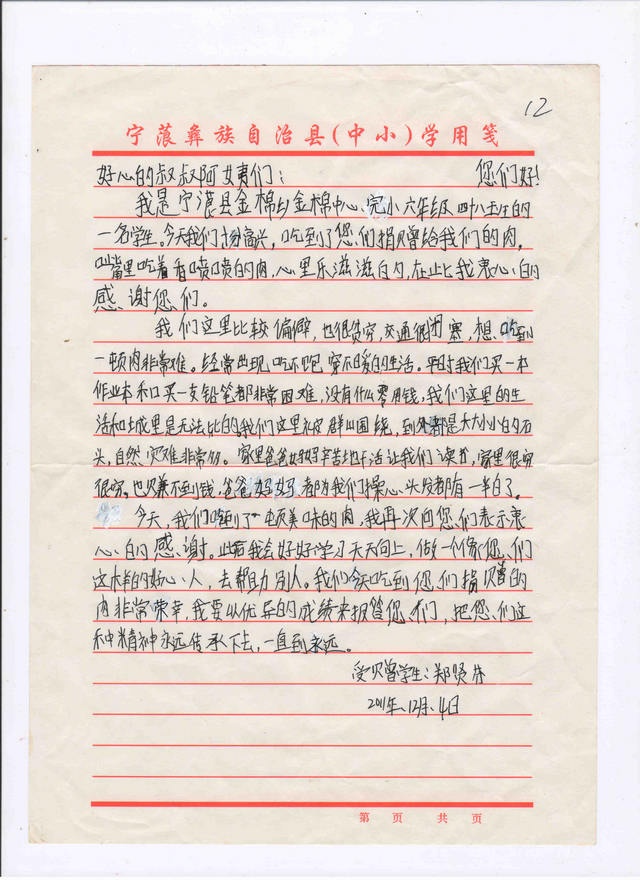 12
宁蒗彝族自治县(中小)学用笺
好心的叔叔阿姨们: 您们好!
我是宁蒗县金棉乡金棉中心完小六年级四十八班的
一名学生。今天我们十份高兴,吃到了您们捐赠给我们的肉。
嘴里吃着香喷喷的肉,心里乐滋滋的,在此我衷心的
感谢您们。
我们这里比较偏僻,也很贫穷,交通很闭塞,想吃到
一顿肉非常难。经常出现吃不饱穿不暖的生活。平时我们买一本
作业本和买一支铅笔都非常困难,没有什么零用钱,我们这里的生
活和城里是无法比的。我们这里被群山围绕,到处都是大大小小的石
头,自然灾难非常多。家里爸爸妈妈辛苦地干活让我们读书,家里很穷
很穷。也赚不到钱,爸爸妈妈都为我们操心头发都有一半白了。
今天,我们吃到了一顿美味的肉,我再次向您们表示衷
心的感谢。此后我会好好学习天天向上,做一个像您们
这样的好心人,去帮助别人。我们今天吃到您们捐赠的
肉非常荣幸,我要以优异的成绩来报答您们,把您们这
种精神永远传承下去,一直到永远。
受赠学生:郑贤
2011年12月4日
第 页 共 页